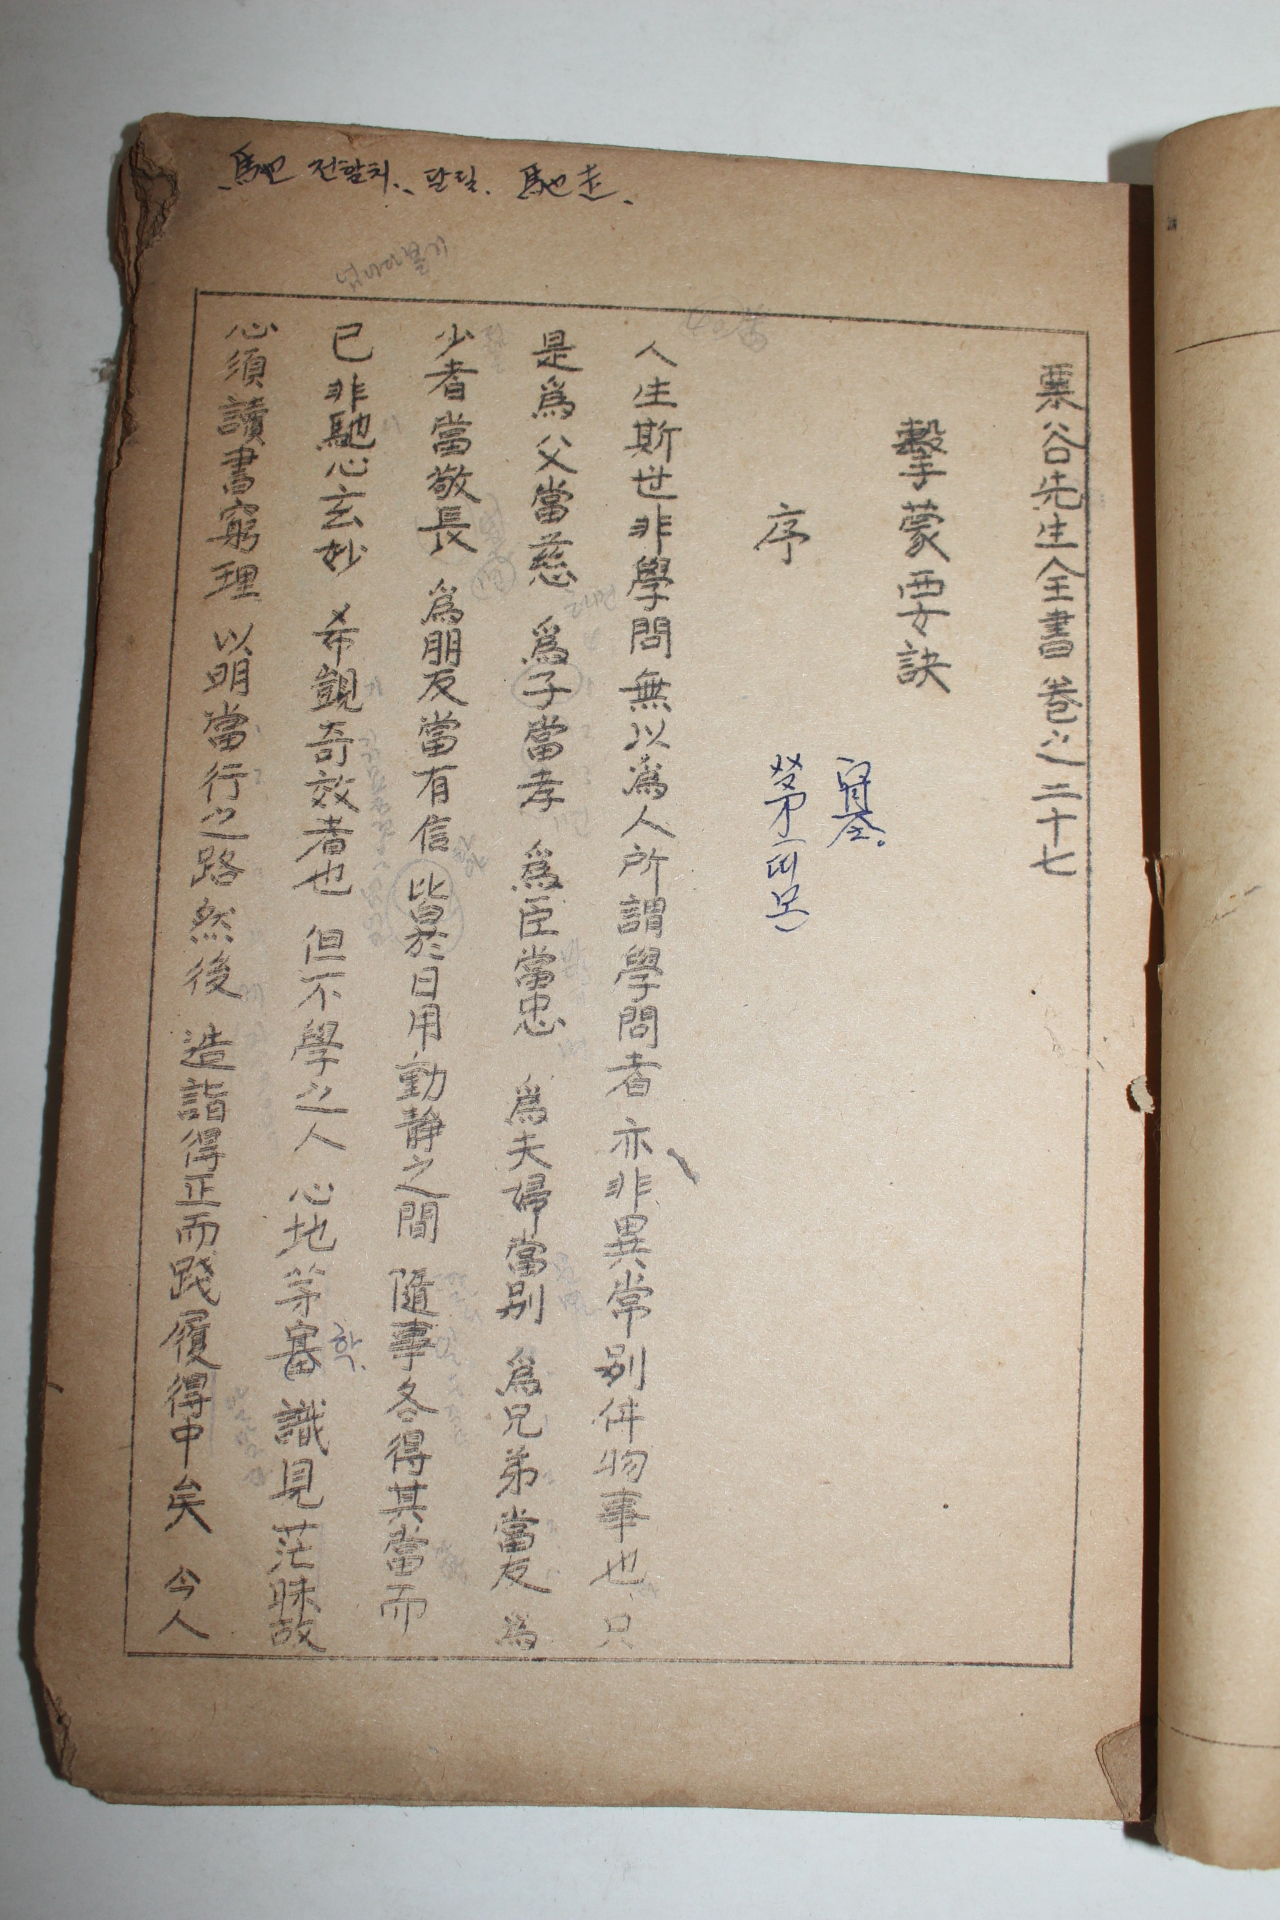 馳 전할치. 달릴. 馳走.
栗谷先生全書 卷之二十七
擊蒙要訣
序
人生斯世非學問無以爲人所謂學問者亦非異常別件物事也只
是爲父當慈 爲子當孝 爲臣當忠 爲夫婦當別 爲兄弟當友 爲
少者當敬長 爲朋友當有信 皆於日用動靜之間 隨事各得其當而
已非馳心玄妙 希覬奇效者也 但不學之人 心地茅塞 識見茫昧故
학.
必須讀書窮理 以明當行之路然後 造詣得正而踐履得中矣 今人